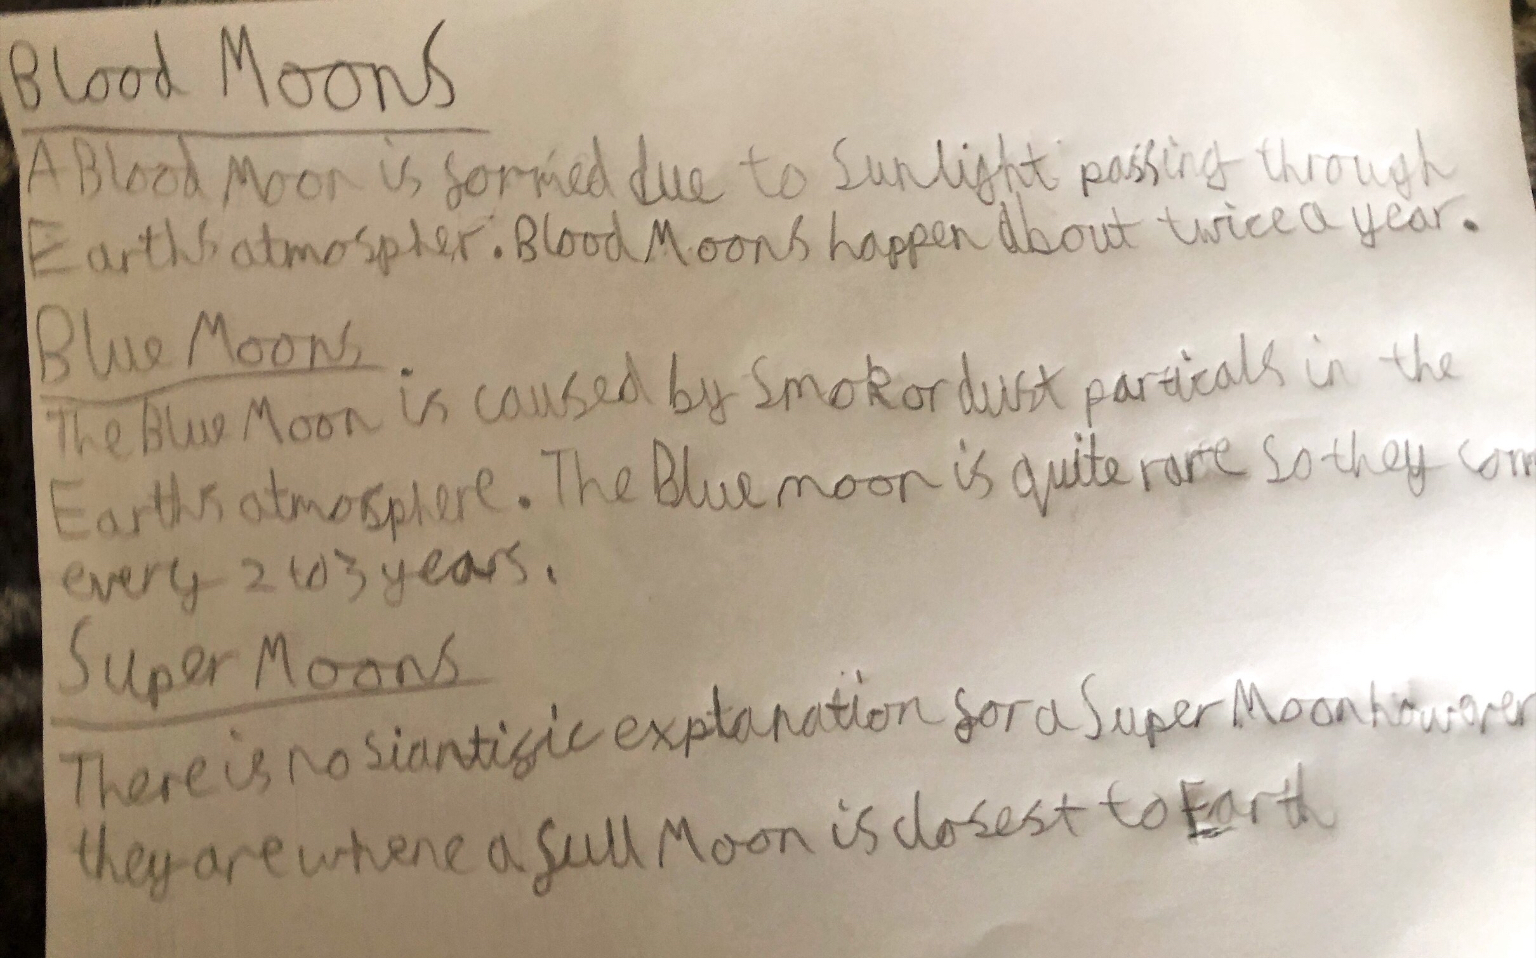 Blood Moons
A Blood Moon is formed due to Sunlight passing through
Earth's atmospher. Blood Moons happen about twice a year.
Blue Moons
The Blue Moon is caused by Smok or dust particals in the
Earth's atmosphere. The Blue moon is quite rare so they com
every 2 to 3 years.
Super Moons
There is no siantific explanation for a Super Moon
they are where a full Moon is closest to Earth